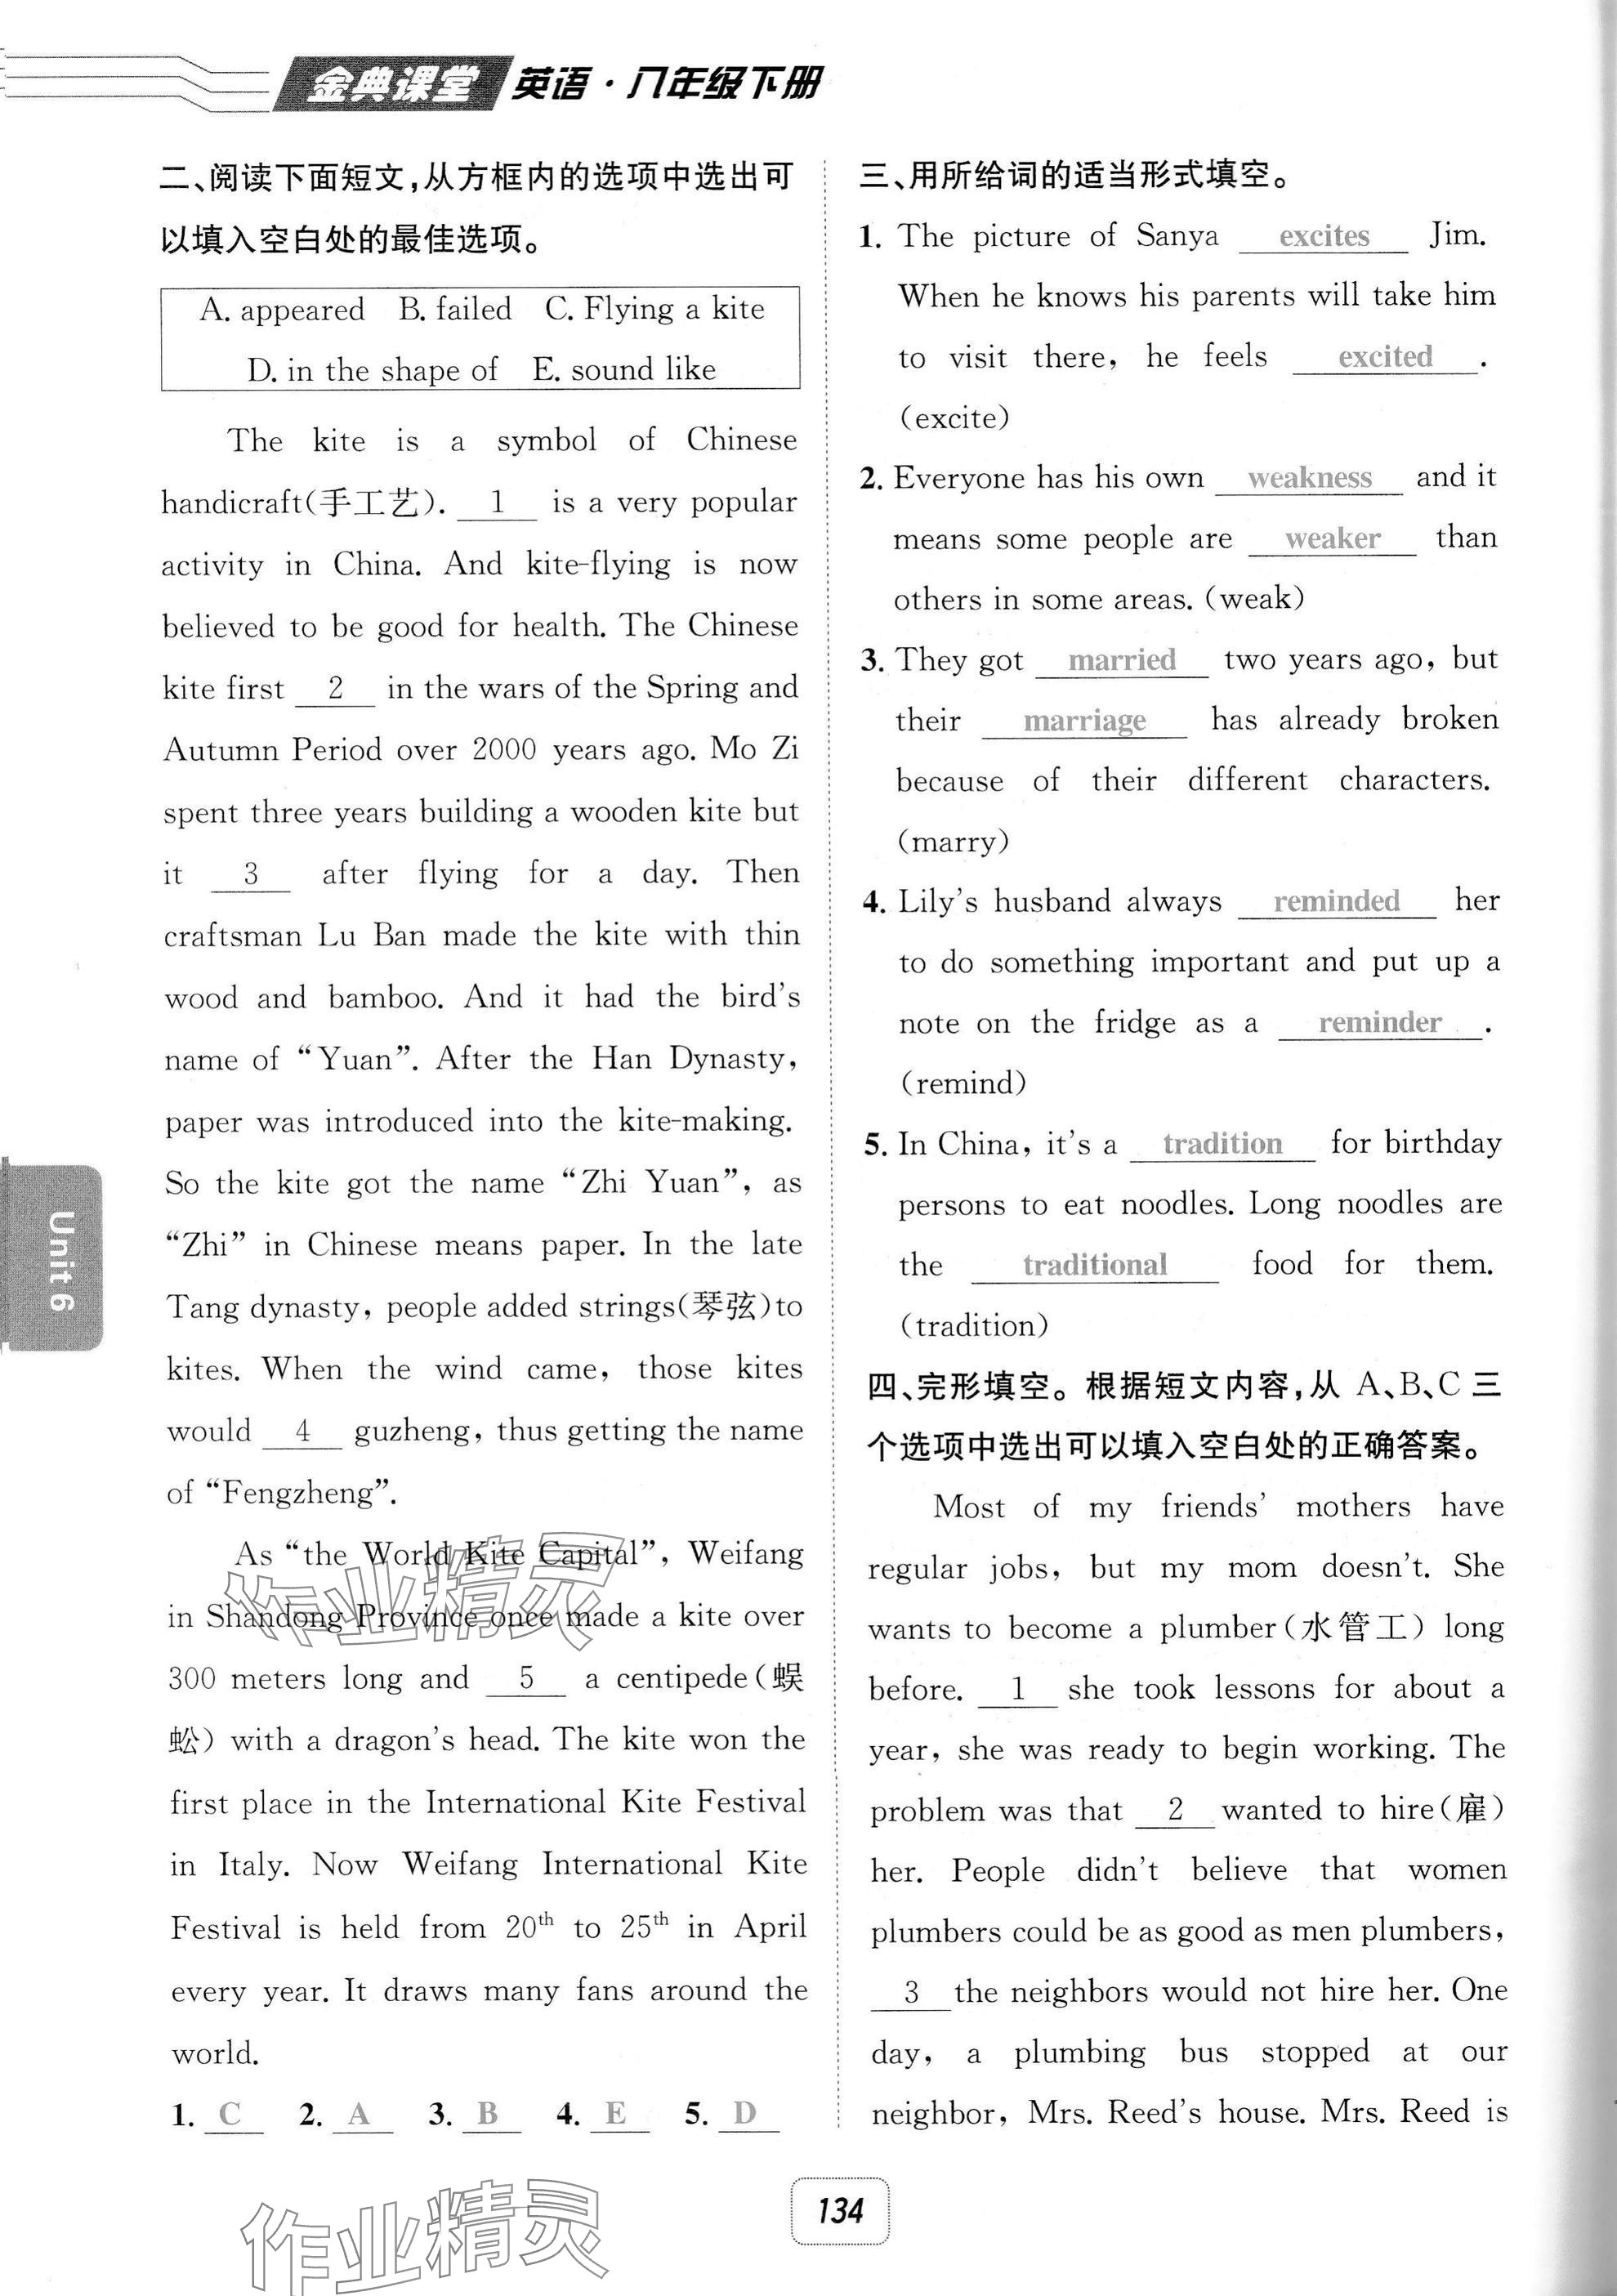 金典课堂 英语·八年级下册
二、阅读下面短文,从方框内的选项中选出可
以填入空白处的最佳选项。
A. appeared B. failed C. Flying a kite
D. in the shape of E. sound like
The kite is a symbol of Chinese
handicraft(手工艺). 1 is a very popular
activity in China. And kite-flying is now
believed to be good for health. The Chinese
kite first 2 in the wars of the Spring and
Autumn Period over 2000 years ago. Mo Zi
spent three years building a wooden kite but
it 3 after flying for a day. Then
craftsman Lu Ban made the kite with thin
wood and bamboo. And it had the bird's
name of “Yuan”. After the Han Dynasty,
paper was introduced into the kite-making.
So the kite got the name “Zhi Yuan”, as
“Zhi” in Chinese means paper. In the late
Tang dynasty, people added strings(琴弦)to
kites. When the wind came, those kites
would 4 guzheng, thus getting the name
of “Fengzheng”.
As “the World Kite Capital”, Weifang
in Shandong Province once made a kite over
300 meters long and 5 a centipede(蜈
蚣) with a dragon's head. The kite won the
first place in the International Kite Festival
in Italy. Now Weifang International Kite
Festival is held from 20th to 25th in April
every year. It draws many fans around the
world.
1. C 2. A 3. B 4. E 5. D
三、用所给词的适当形式填空。
1. The picture of Sanya excites Jim.
When he knows his parents will take him
to visit there, he feels excited.
(excite)
2. Everyone has his own weakness and it
means some people are weaker than
others in some areas. (weak)
3. They got married two years ago, but
their marriage has already broken
because of their different characters.
(marry)
4. Lily's husband always reminded her
to do something important and put up a
note on the fridge as a reminder.
(remind)
5. In China, it's a tradition for birthday
persons to eat noodles. Long noodles are
the traditional food for them.
(tradition)
四、完形填空。根据短文内容,从 A、B、C 三
个选项中选出可以填入空白处的正确答案。
Most of my friends' mothers have
regular jobs, but my mom doesn't. She
wants to become a plumber(水管工) long
before. 1 she took lessons for about a
year, she was ready to begin working. The
problem was that 2 wanted to hire(雇)
her. People didn't believe that women
plumbers could be as good as men plumbers,
3 the neighbors would not hire her. One
day, a plumbing bus stopped at our
neighbor, Mrs. Reed's house. Mrs. Reed is
Unit 6
134
作业精灵
作业精灵